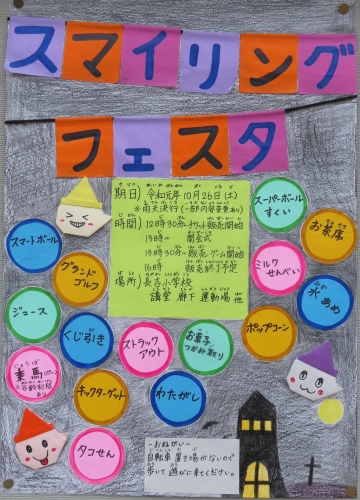 スマイリング
フェスタ
期日) 令和元年10月26日(土)
※雨天決行(一部内容変更あり)
時間) 12時30分~チケット販売開始
13時~ 開会式
13時30分~販売・ゲーム開始
16時 販売終了予定
場所) 長吉小学校
講堂 廊下 運動場 他
スーパーボール
すくい
お茶席
スマートボール
グランド
ゴルフ
ミルク
せんべい
水あめ
ジュース
くじ引き
ストラック
アウト
お菓子
つかみ取り
ポップコーン
乗馬
※年齢制限
あり
キックターゲット
わたがし
タコせん
―おねがい―
自転車置き場がないので
歩いて遊びに来てください。